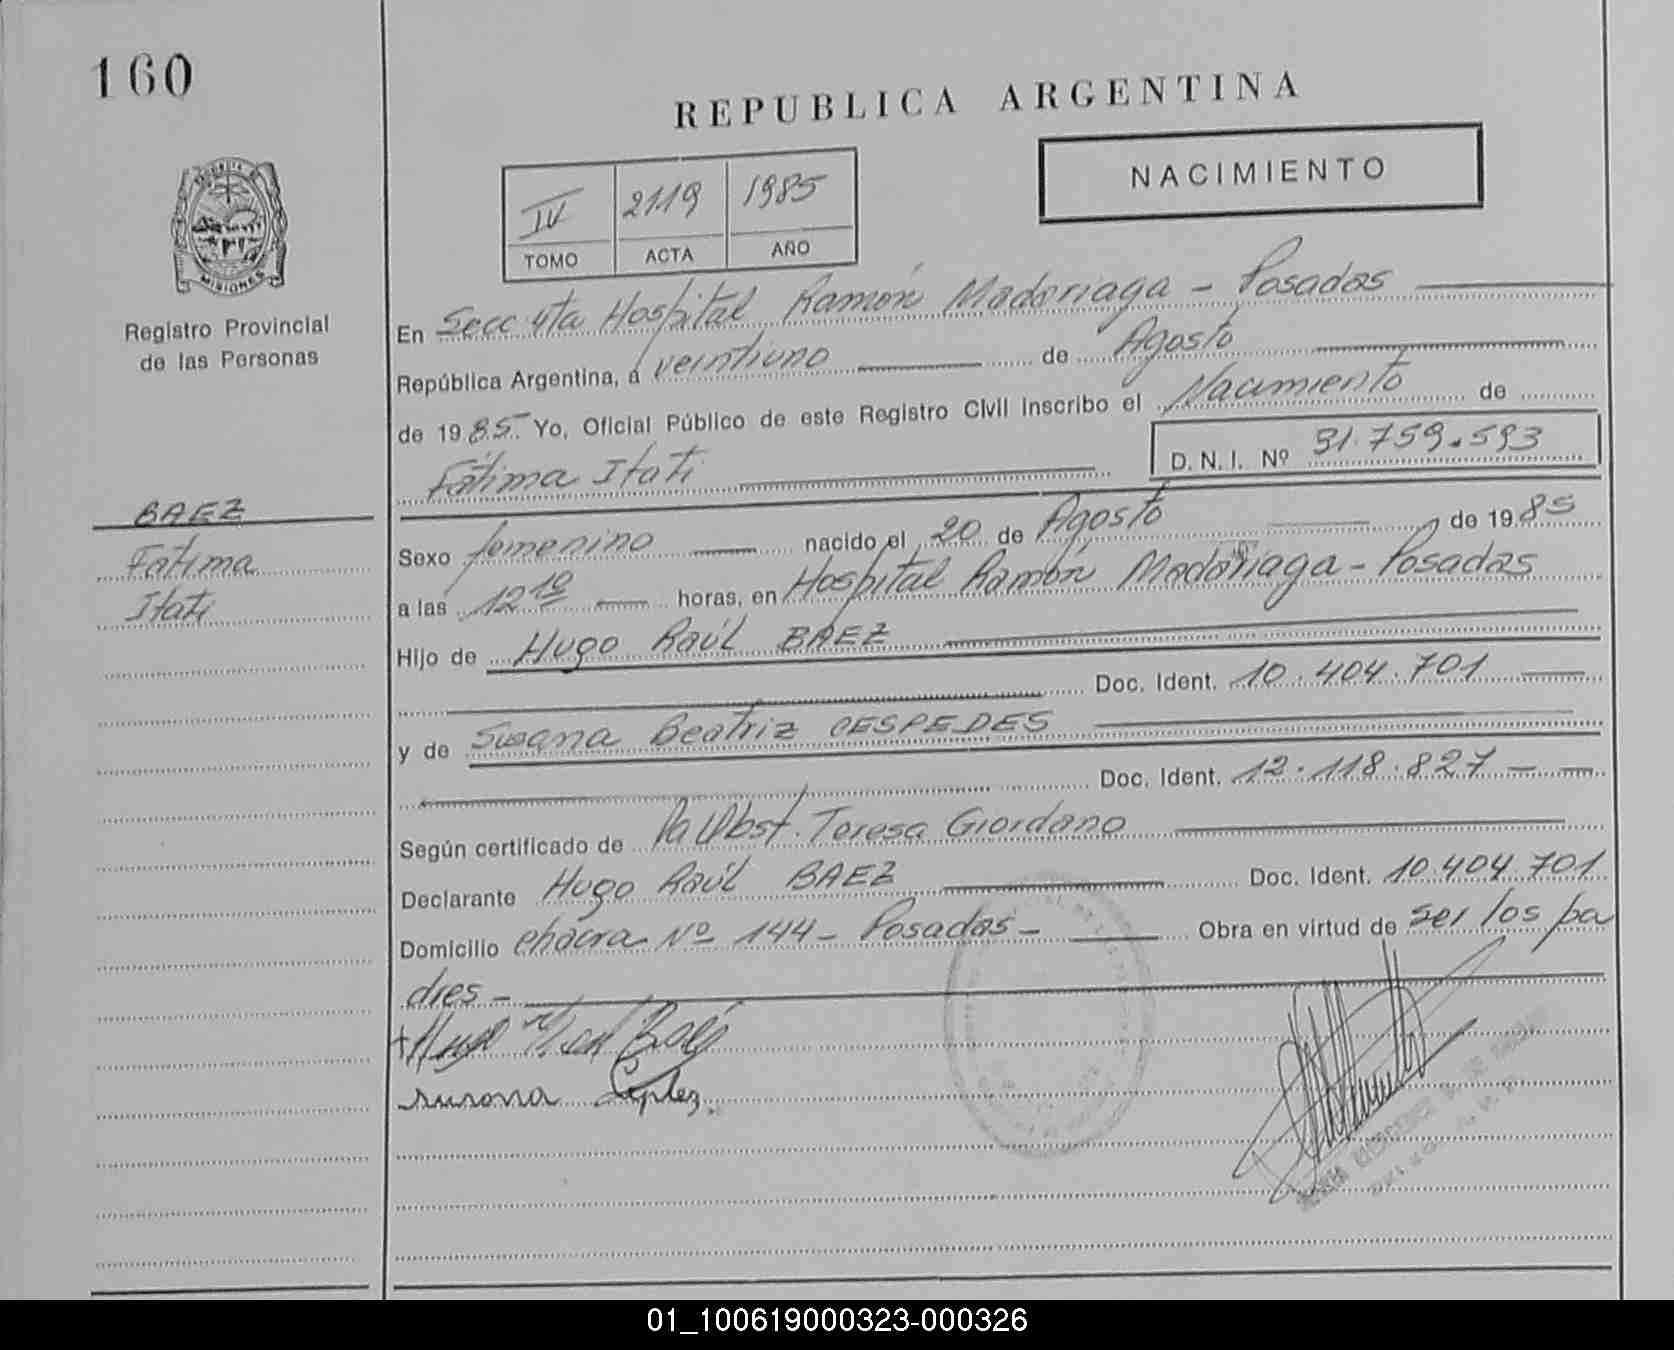 160
REPUBLICA ARGENTINA
NACIMIENTO
IV 2119 1985
TOMO ACTA AÑO
MISIONES
Registro Provincial
de las Personas
En Secc 4ta Hospital Ramón Madariaga - Posadas
República Argentina, a veintiuno de Agosto
de 1985. Yo, Oficial Público de este Registro Civil inscribo el Nacimiento de
D. N. I. Nº 31.759.593
Fátima Itati
BAEZ
Fatima
Itati
Sexo femenino nacido el 20 de Agosto de 1985
a las 12 10 horas, en Hospital Ramón Madariaga - Posadas
Hijo de Hugo Raúl BAEZ
Doc. Ident. 10.404.701
y de Susana Beatriz CESPEDES
Doc. Ident. 12.118.827
Según certificado de la Obst. Teresa Giordano
Declarante Hugo Raúl BAEZ Doc. Ident. 10.404.701
Domicilio chacra Nº 144 - Posadas - Obra en virtud de ser los pa
dres -
01_100619000323-000326